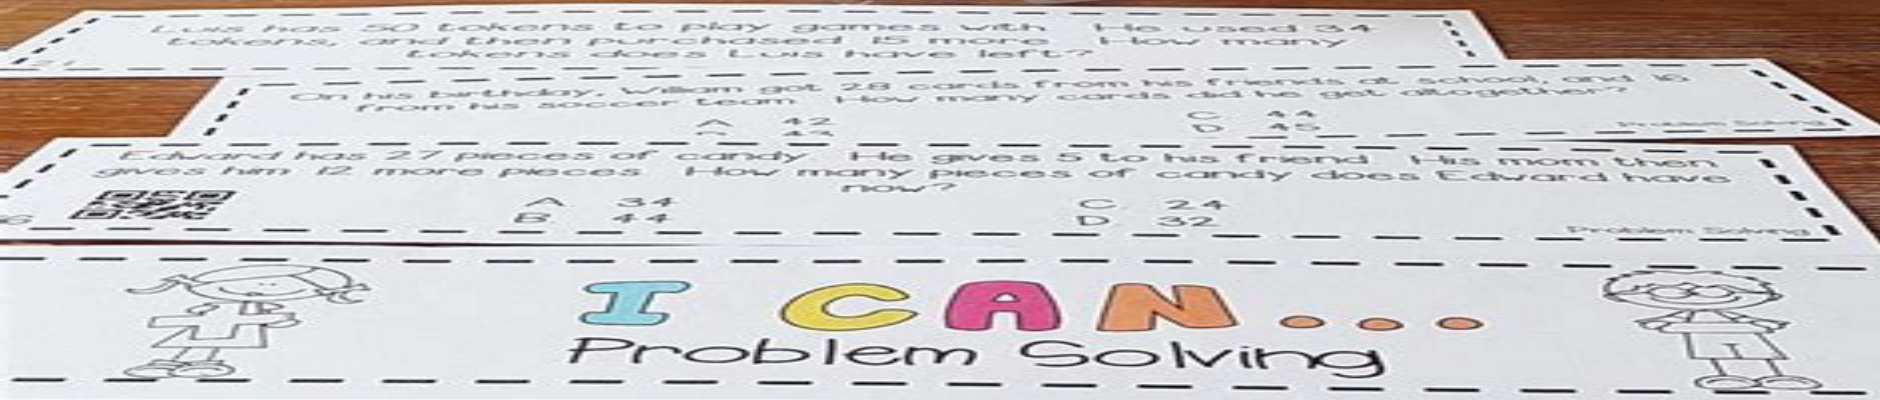 Luis has 50 tokens to play games with. He used 34
tokens, and then purchased 15 more. How many
tokens does Luis have left?
On his birthday, William got 28 cards from his friends at school, and 16
from his soccer team. How many cards did he get altogether?
A. 42 C. 44
B. 43 D. 45
Problem Solving
Edward has 27 pieces of candy. He gives 5 to his friend. His mom then
gives him 12 more pieces. How many pieces of candy does Edward have
now?
A. 34 C. 24
B. 44 D. 32
Problem Solving
I CAN...
Problem Solving